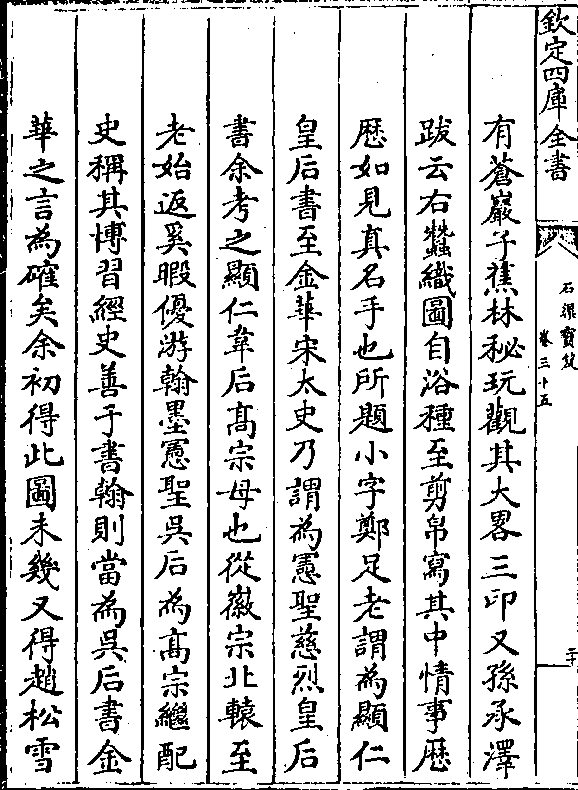 欽定四庫全書
石渠寶笈
卷三十五
二十
有蒼巖子蕉林秘玩觀其大畧三印又孫承澤
跋云右蠶織圖自浴種至剪帛寫其中情事歷
歷如見真名手也所題小字鄭足老謂為顯仁
皇后書至金華宋太史乃謂為憲聖慈烈皇后
書余考之顯仁韋后高宗母也從徽宗北轅至
老始返奚暇優游翰墨憲聖吳后為高宗繼配
史稱其博習經史善于書翰則當為吳后書金
華之言為確矣余初得此圖未幾又得趙松雪